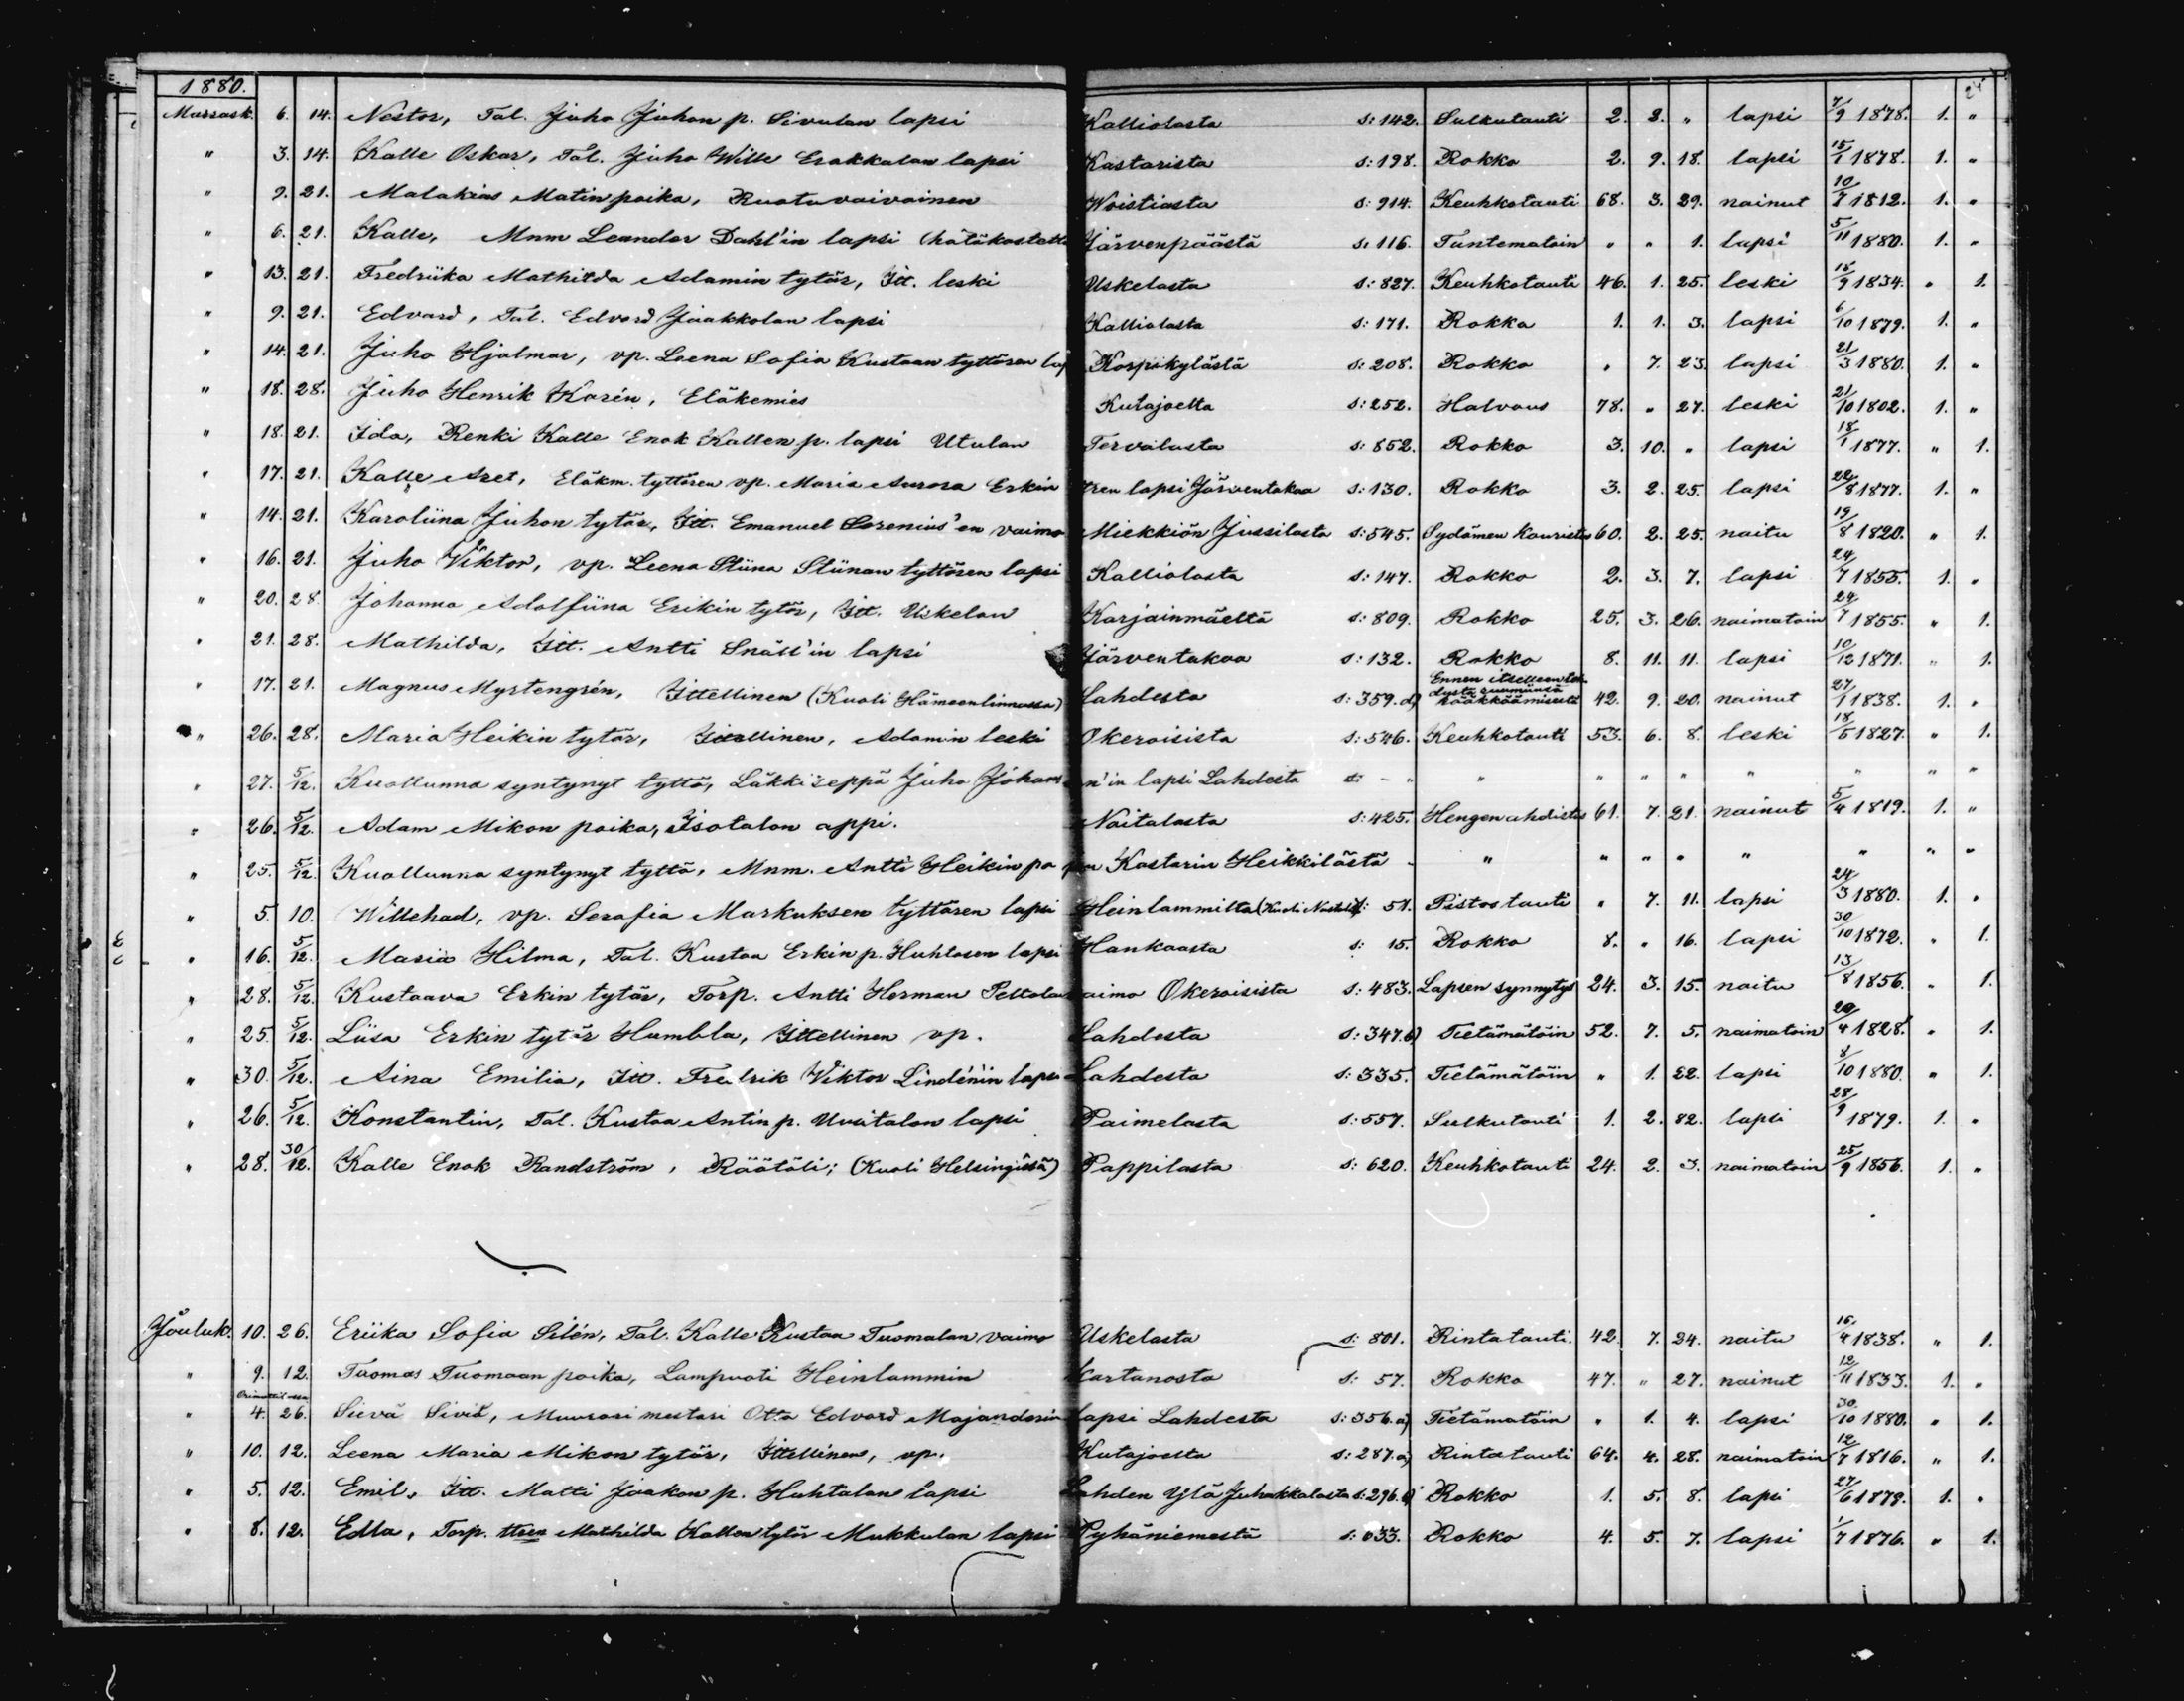 1880.
Marrask. 6. 14. Nestor, Tal. Juho Juhon p. Sivulan lapsi Kalliolasta s: 142. Sulkutauti 2. 2. " lapsi 7/9 1878. 1. "
" 3. 14. Kalle Oskar, Tal. Juho Wille Erakkalan lapsi Kastarista s: 198. Rokko 2. 9. 18. lapsi 15/1 1878. 1. "
" 9. 21. Malakias Matin poika, Ruotuvaivainen Woistiosta s: 914. Keuhkotauti 68. 3. 29. nainut 10/7 1812. 1. "
" 6. 21. Kalle, Mnm Leander Dahl'in lapsi (hätäkastettu Järvenpäästä s: 116. Tuntematoin " " 1. lapsi 5/11 1880. 1. "
" 13. 21. Fredriika Mathilda Adamin tytär, Itt. leski Uskelasta s: 827. Keuhkotauti 46. 1. 25. leski 18/9 1834. " 1.
" 9. 21. Edvard, Tal. Edvard Jaakkolan lapsi Kalliolasta s: 171. Rokko 1. 1. 3. lapsi 6/10 1879. 1. "
" 14. 21. Juho Hjalmar, vp. Leena Sofia Kustaan tyttären lap Korpikylästä s: 208. Rokko " 7. 23. lapsi 21/3 1880. 1. "
" 18. 28. Juho Henrik Korén, Eläkemies Kutajoelta s: 252. Halvaus 78. " 27. leski 21/10 1802. 1. "
" 18. 21. Ida, Renki Kalle Enok Kallen p. lapsi Utulan Tervalasta s: 852. Rokko 3. 10. " lapsi 18/1 1877. " 1.
" 17. 21. Kalle Aret, Eläkm. tyttären vp. Maria Aurora Erkin tren lapsi Järventakaa s: 130. Rokko 3. 2. 25. lapsi 22/8 1877. 1. "
" 14. 21. Karoliina Juhon tytär, Itt. Emanuel Sorenius'en vaimo Miekkiön Jussilasta s: 545. Sydämen kouristus 60. 2. 25. naitu 19/8 1820. " 1.
" 16. 21. Juho Viktor, vp. Leena Stiina Stiinan tyttären lapsi Kalliolasta s: 147. Rokko 2. 3. 7. lapsi 24/7 1855. 1. "
" 20. 28. Johanna Adolfiina Erikin tytär, Itt. Uskelan Karjainmäeltä s: 809. Rokko 25. 3. 26. naimatoin 24/7 1855. " 1.
" 21. 28. Mathilda, Itt. Antti Snäll'in lapsi Järventakaa s: 132. Rokko 8. 11. 11. lapsi 10/12 1871. " 1.
" 17. 21. Magnus Myrtengrén, Ittellinen (Kuoli Hämeenlinnassa) Lahdesta s: 359. d) Ennen itselleen teh dystä ruumiinsä 42. 9. 20. nainut 27/1 1838. 1. "
" 26. 28. Maria Heikin tytär, Ittellinen, Adamin leski Okeroisista s: 546. Keuhkotauti 53. 6. 8. leski 18/5 1827. " 1.
" 27. 5/12. Kuollunna syntynyt tyttö, Läkkiseppä Juho Johans n'in lapsi Lahdesta s: - " " " " " " " " "
" 26. 5/12. Adam Mikon poika, Isotalon appi. Noitalasta s: 425. Hengenahdistus 61. 7. 21. nainut 5/4 1819. 1. "
" 25. 5/12. Kuollunna syntynyt tyttö, Mnm. Antti Heikin po jan Kastarin Heikkilästä - " " " " " " " "
" 5. 10. Willehad, vp. Serafia Markuksen tyttären lapsi Heinlammilta (Kuoli Nastola) s: 51. Pistostauti " 7. 11. lapsi 24/3 1880. 1. "
" 16. 5/12. Maria Hilma, Tal. Kustaa Erkin p. Huhtasen lapsi Hankaasta s: 15. Rokko 8. " 16. lapsi 30/10 1872. " 1.
" 28. 5/12. Kustaava Erkin tytär, Torp. Antti Herman Peltolan vaimo Okeroisista s: 483. Lapsen synnytys 24. 3. 15. naitu 13/8 1856. " 1.
" 25. 5/12. Liisa Erkin tytär Humbla, Ittellinen vp. Lahdesta s: 347. b) Tietämätöin 52. 7. 5. naimatoin 20/4 1828. " 1.
" 30. 5/12. Aina Emilia, Itt. Fredrik Wiktor Lindén'in lapsi Lahdesta s: 335. Tietämätöin " 1. 22. lapsi 8/10 1880. " 1.
" 26. 5/12. Konstantin, Tal. Kustaa Antin p. Uusitalon lapsi Paimelasta s: 557. Sulkutauti 1. 2. 82. lapsi 28/9 1879. 1. "
" 28. 30/12. Kalle Enok Randström, Räätäli; (Kuoli Helsingissä) Pappilasta s: 620. Keuhkotauti 24. 2. 3. naimatoin 25/9 1856. 1. "
Jouluk. 10. 26. Eriika Sofia Silén, Tal. Kalle Kustaa Tuomalan vaimo Uskelasta s: 801. Rintatauti. 42. 7. 24. naitu 16/4 1838. " 1.
" 9. 12. Tuomas Tuomaan poika, Lampuoti Heinlammin Kartanosta s: 57. Rokko 47. " 27. nainut 12/11 1833. 1. "
Orimattilassa
" 4. 26. Sievä Siviä, Muurari mestari Otto Edvard Majanderin lapsi Lahdesta s: 356. a) Tietämätöin " 1. 4. lapsi 30/10 1880. " 1.
" 10. 12. Leena Maria Mikon tytär, Ittellinen, vp. Kutajoelta s: 287. a) Rintatauti 64. 4. 28. naimatoin 12/7 1816. " 1.
" 5. 12. Emil, Itt. Matti Jaakon p. Huhtalan lapsi Lahden Ylä Juhakkalasta s: 296. b) Rokko 1. 5. 8. lapsi 27/6 1879. 1. "
" 8. 12. Edla, Torp. ttren Mathilda Kallen tytär Mukkulan lapsi Pyhäniemestä s: 633. Rokko 4. 5. 7. lapsi 1/7 1876. " 1.